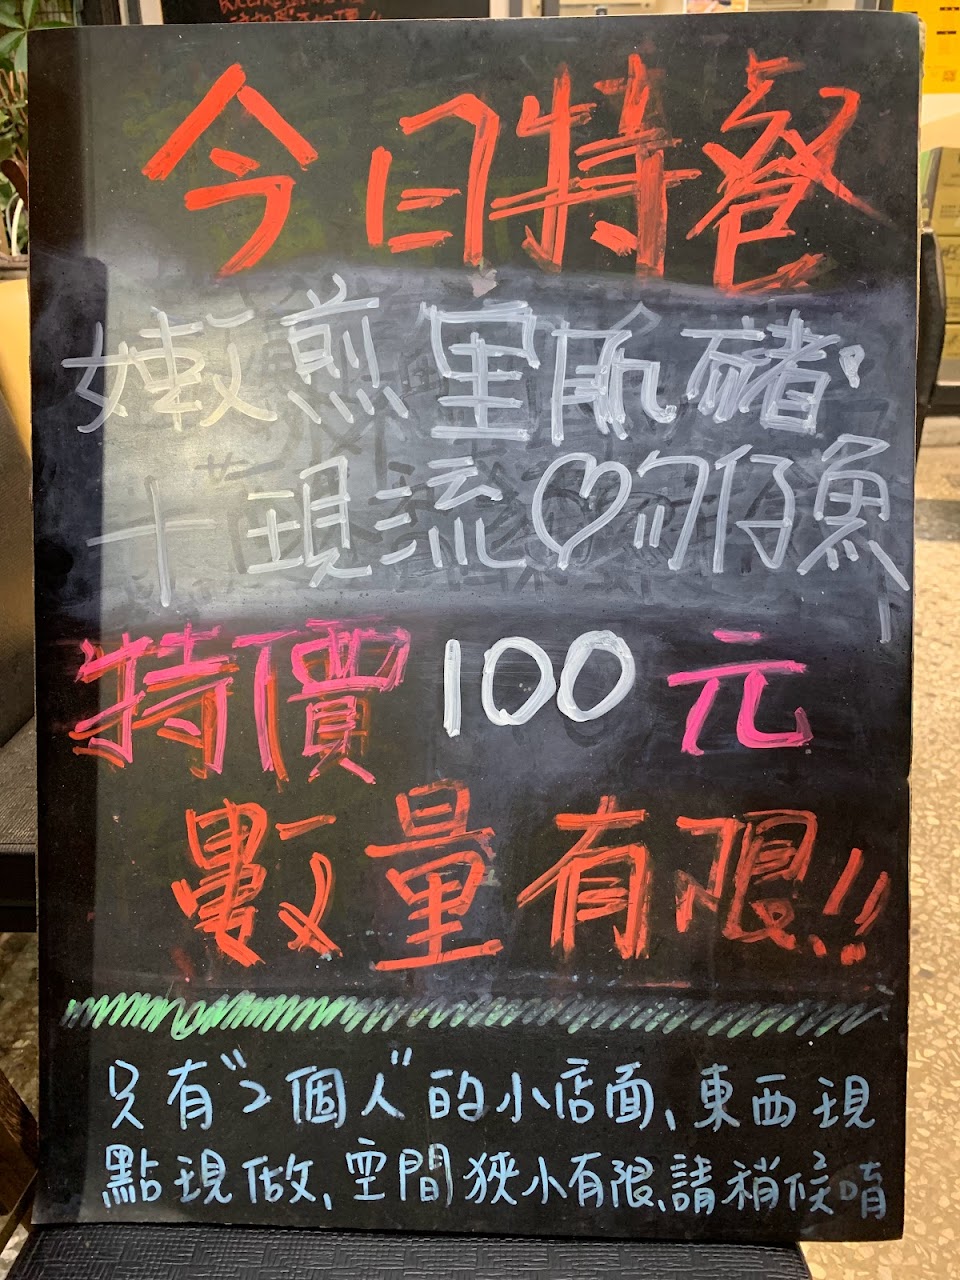 今日特餐
嫩煎里肌豬
十現流♡吻仔魚
特價100元
數量有限!!
只有"2個人"的小店面、東西現
點現做、空間狹小有限、請稍候唷